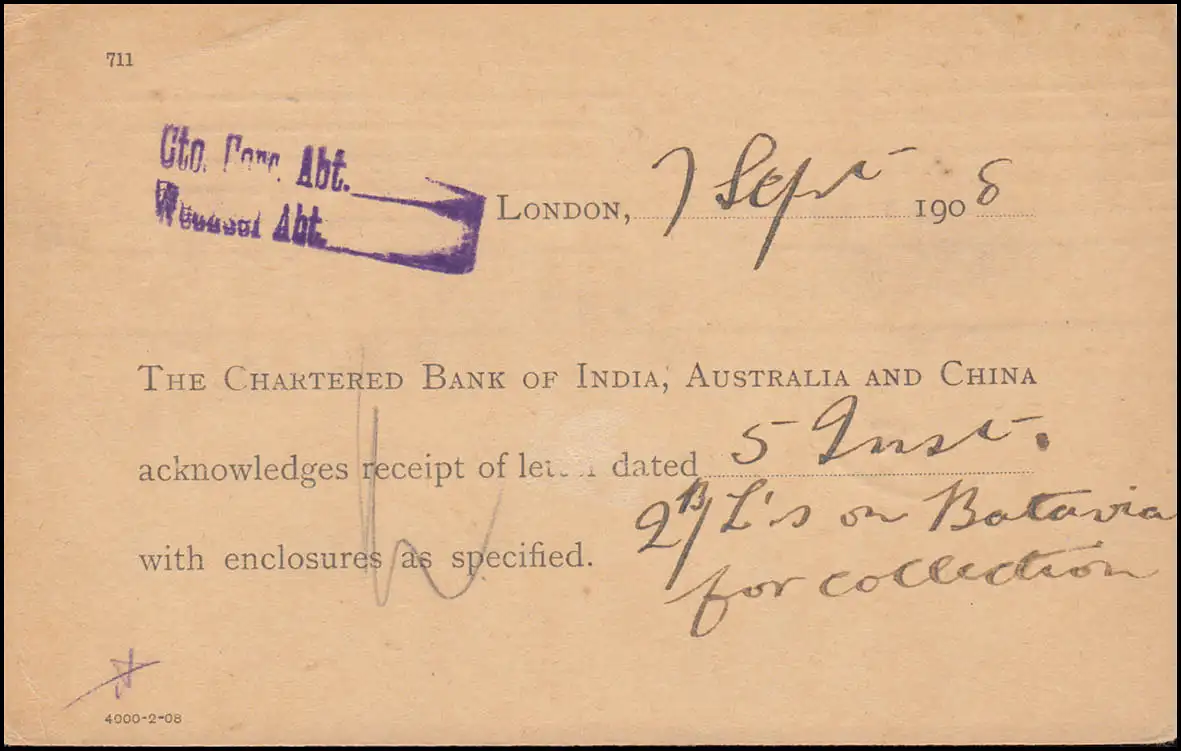 711
Cto. Abt.
Abt.
LONDON, 7 Sept 1908
THE CHARTERED BANK OF INDIA, AUSTRALIA AND CHINA
acknowledges receipt of dated 5 Inst.
with enclosures as specified. 2 B/L's on Batavia
for collection
4000-2-08